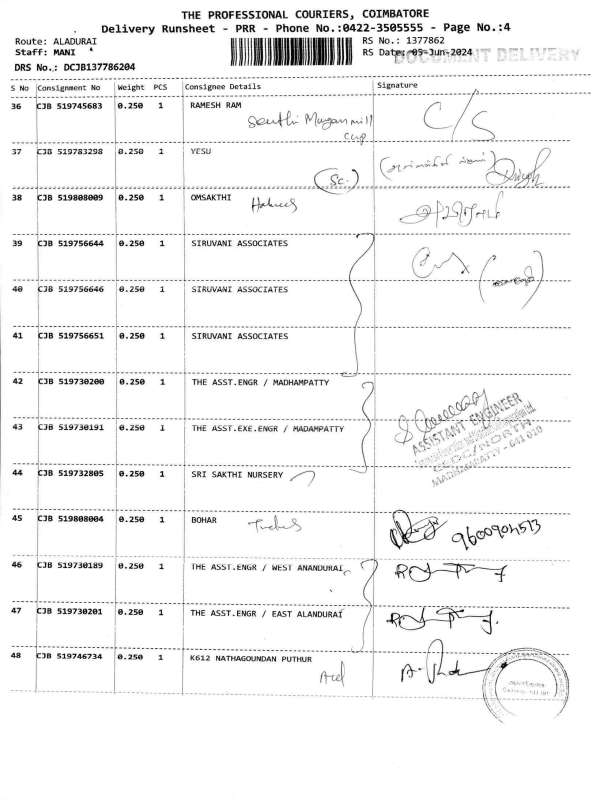 THE PROFESSIONAL COURIERS, COIMBATORE
Delivery Runsheet - PRR - Phone No.:0422-3505555 - Page No.:4
Route: ALADURAI RS No.: 1377862
Staff: MANI RS Date: 05-Jun-2024 DOCUMENT DELIVERY
DRS No.: DCJB137786204
S No Consignment No Weight PCS Consignee Details Signature
36 CJB 519745683 0.250 1 RAMESH RAM C/S
37 CJB 519783298 0.250 1 YESU
Sc.
38 CJB 519808009 0.250 1 OMSAKTHI
39 CJB 519756644 0.250 1 SIRUVANI ASSOCIATES
40 CJB 519756646 0.250 1 SIRUVANI ASSOCIATES
41 CJB 519756651 0.250 1 SIRUVANI ASSOCIATES
42 CJB 519730200 0.250 1 THE ASST.ENGR / MADHAMPATTY
43 CJB 519730191 0.250 1 THE ASST.EXE.ENGR / MADAMPATTY
ASSISTANT ENGINEER
MADHAMPATTY - 641 010
44 CJB 519732805 0.250 1 SRI SAKTHI NURSERY
45 CJB 519808004 0.250 1 BOHAR
46 CJB 519730189 0.250 1 THE ASST.ENGR / WEST ANANDURAI
47 CJB 519730201 0.250 1 THE ASST.ENGR / EAST ALANDURAI
48 CJB 519746734 0.250 1 K612 NATHAGOUNDAN PUTHUR